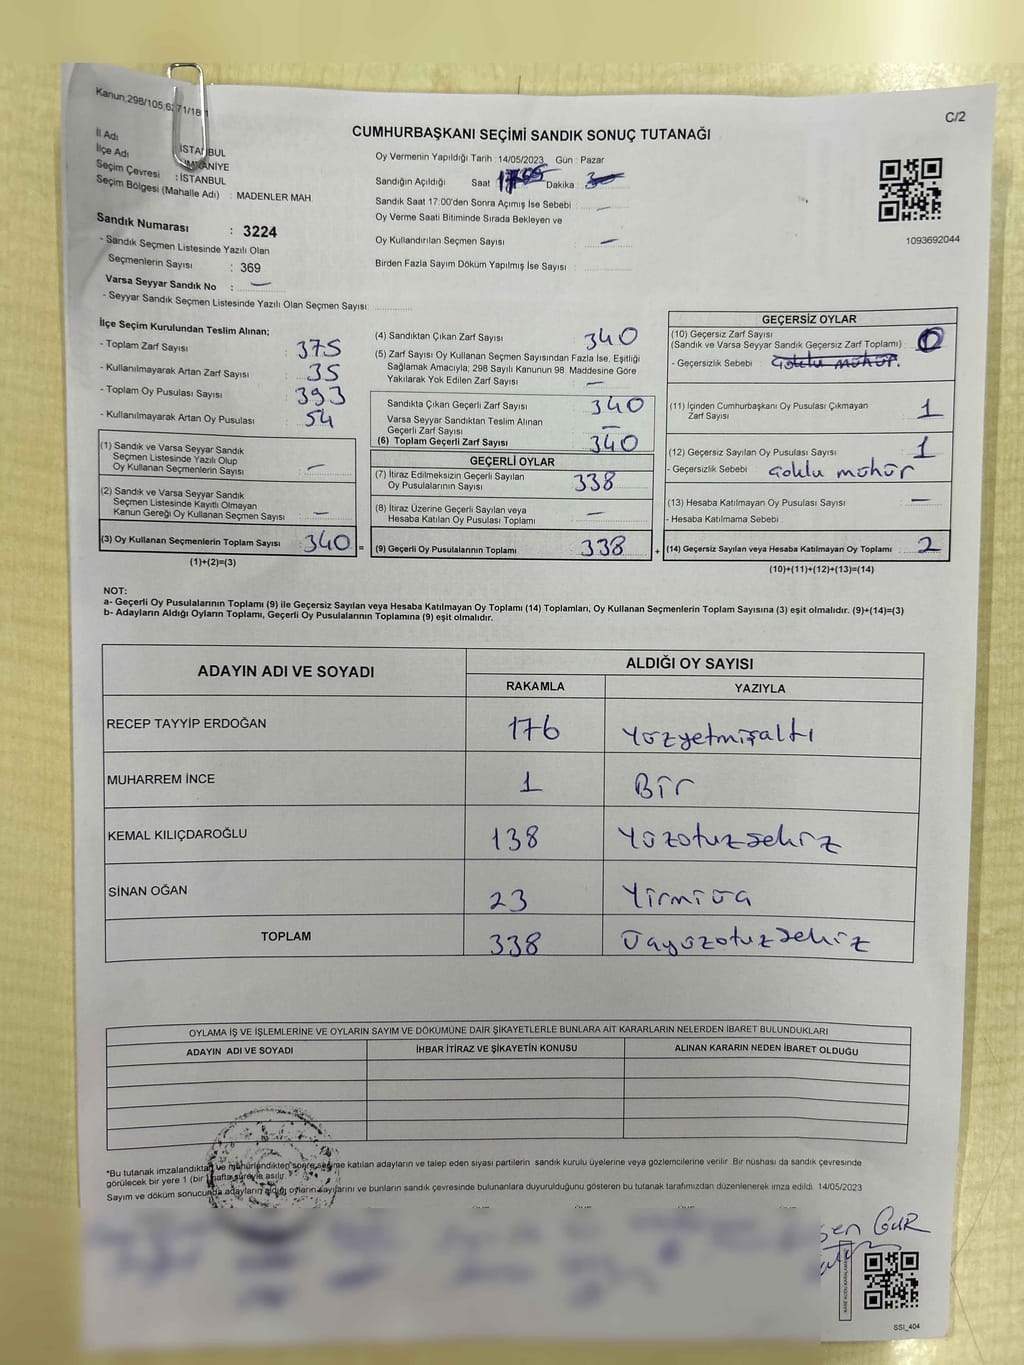 Kanun;298/105,6; 71/18
C/2
CUMHURBAŞKANI SEÇİMİ SANDIK SONUÇ TUTANAĞI
İl Adı : İSTANBUL
İlçe Adı : ÜMRANİYE
Seçim Çevresi : İSTANBUL
Seçim Bölgesi (Mahalle Adı) : MADENLER MAH
Oy Vermenin Yapıldığı Tarih 14/05/2023 Gün : Pazar
Sandığın Açıldığı Saat Dakika
Sandık Saat 17:00'den Sonra Açımış İse Sebebi :
Oy Verme Saati Bitiminde Sırada Bekleyen ve
Oy Kullandırılan Seçmen Sayısı :
Birden Fazla Sayım Döküm Yapılmış İse Sayısı :
1093692044
Sandık Numarası : 3224
- Sandık Seçmen Listesinde Yazılı Olan
Seçmenlerin Sayısı : 369
Varsa Seyyar Sandık No : —
- Seyyar Sandık Seçmen Listesinde Yazılı Olan Seçmen Sayısı:
İlçe Seçim Kurulundan Teslim Alınan;
- Toplam Zarf Sayısı : 375
- Kullanılmayarak Artan Zarf Sayısı : 35
- Toplam Oy Pusulası Sayısı : 393
- Kullanılmayarak Artan Oy Pusulası : 54
(1) Sandık ve Varsa Seyyar Sandık
Seçmen Listesinde Yazılı Olup
Oy Kullanan Seçmenlerin Sayısı : —
(2) Sandık ve Varsa Seyyar Sandık
Seçmen Listesinde Kayıtlı Olmayan
Kanun Gereği Oy Kullanan Seçmen Sayısı : —
(3) Oy Kullanan Seçmenlerin Toplam Sayısı : 340
(1)+(2)=(3)
=
(4) Sandıktan Çıkan Zarf Sayısı : 340
(5) Zarf Sayısı Oy Kullanan Seçmen Sayısından Fazla İse, Eşitliği
Sağlamak Amacıyla; 298 Sayılı Kanunun 98. Maddesine Göre
Yakılarak Yok Edilen Zarf Sayısı : —
Sandıkta Çıkan Geçerli Zarf Sayısı : 340
Varsa Seyyar Sandıktan Teslim Alınan
Geçerli Zarf Sayısı : —
(6) Toplam Geçerli Zarf Sayısı : 340
GEÇERLİ OYLAR
(7) İtiraz Edilmeksizin Geçerli Sayılan
Oy Pusulalarının Sayısı : 338
(8) İtiraz Üzerine Geçerli Sayılan veya
Hesaba Katılan Oy Pusulası Toplamı : —
(9) Geçerli Oy Pusulalarının Toplamı : 338
+
GEÇERSİZ OYLAR
(10) Geçersiz Zarf Sayısı
(Sandık ve Varsa Seyyar Sandık Geçersiz Zarf Toplamı) : 0
- Geçersizlik Sebebi : çoklu mühür.
(11) İçinden Cumhurbaşkanı Oy Pusulası Çıkmayan
Zarf Sayısı : 1
(12) Geçersiz Sayılan Oy Pusulası Sayısı : 1
- Geçersizlik Sebebi : çoklu mühür
(13) Hesaba Katılmayan Oy Pusulası Sayısı : —
- Hesaba Katılmama Sebebi :
(14) Geçersiz Sayılan veya Hesaba Katılmayan Oy Toplamı : 2
(10)+(11)+(12)+(13)=(14)
NOT:
a- Geçerli Oy Pusulalarının Toplamı (9) ile Geçersiz Sayılan veya Hesaba Katılmayan Oy Toplamı (14) Toplamları, Oy Kullanan Seçmenlerin Toplam Sayısına (3) eşit olmalıdır. (9)+(14)=(3)
b- Adayların Aldığı Oyların Toplamı, Geçerli Oy Pusulalarının Toplamına (9) eşit olmalıdır.
ADAYIN ADI VE SOYADI
ALDIĞI OY SAYISI
RAKAMLA YAZIYLA
RECEP TAYYİP ERDOĞAN 176 Yüzyetmişaltı
MUHARREM İNCE 1 Bir
KEMAL KILIÇDAROĞLU 138 Yüzotuzsekiz
SİNAN OĞAN 23 Yirmiüç
TOPLAM 338 Üçyüzotuzsekiz
OYLAMA İŞ VE İŞLEMLERİNE VE OYLARIN SAYIM VE DÖKÜMÜNE DAİR ŞİKAYETLERLE BUNLARA AİT KARARLARIN NELERDEN İBARET BULUNDUKLARI
ADAYIN ADI VE SOYADI İHBAR İTİRAZ VE ŞİKAYETİN KONUSU ALINAN KARARIN NEDEN İBARET OLDUĞU
*Bu tutanak imzalandıktan ve mühürlendikten sonra seçime katılan adayların ve talep eden siyasi partilerin sandık kurulu üyelerine veya gözlemcilerine verilir. Bir nüshası da sandık çevresinde
görülecek bir yere 1 (bir) hafta süreyle asılır.
Sayım ve döküm sonucunda adayların aldığı oyların sayılarını ve bunların sandık çevresinde bulunanlara duyurulduğunu gösteren bu tutanak tarafımızdan düzenlenerek imza edildi. 14/05/2023
şen GÜR
SSI_404